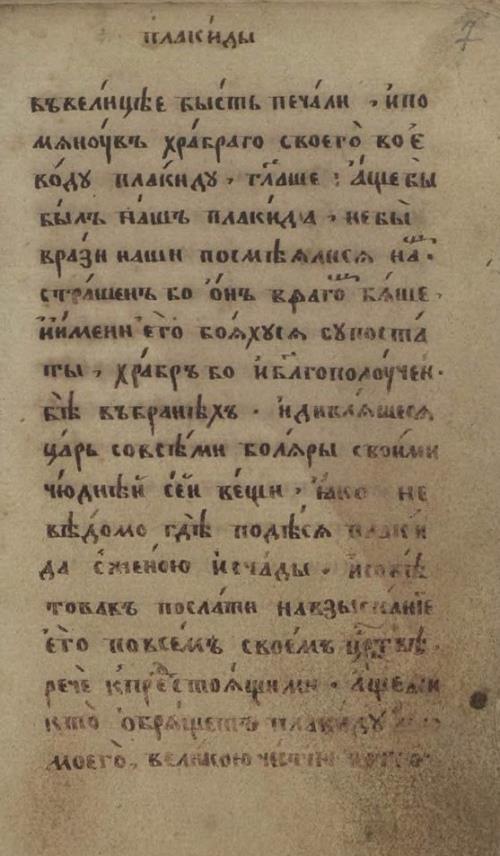 плаки́ды 7
въвели́цѣе бы́сть печа́ли , ѝпо
мѧноу́въ хра́браго своего̀ во Є
во́ду плаки́ду , гл҃аше : А҆́щебы̀
бы́лъ на́шъ плаки́да , небы̀
врази̑ наши посмѣѧ́лисѧ на́ ш .
стра́шенъ бо ѻ҆́нъ враго́ м бѧ́ше .
и҆и́мени е҆го̀ боѧ́хусѧ супоста́
ты , хра́бръ бо и҆ бл҃гополоу́чен .
бѣ̀ въбра́нѣхъ . и҆дивлѧ́шесѧ
ца́рь совсѣ́ми болѧ́ры свои́ми
чю́днѣй се́й ве́щи , ꙗ҆́ко не
вѣ́домо гдѣ̀ подѣ́сѧ плаки́
да с̾жено́ю и҆сча́ды .
това́въ посла́ти навзыска́нїе
е҆го̀ повсе́мъ свое́мъ црт҃вѣ .
речѐ к̾пре дстоѧ́щими . А҆́ще
кто̀ ѻ҆брѧ́щетъ плаки́ду
моего̀ , вели́кою